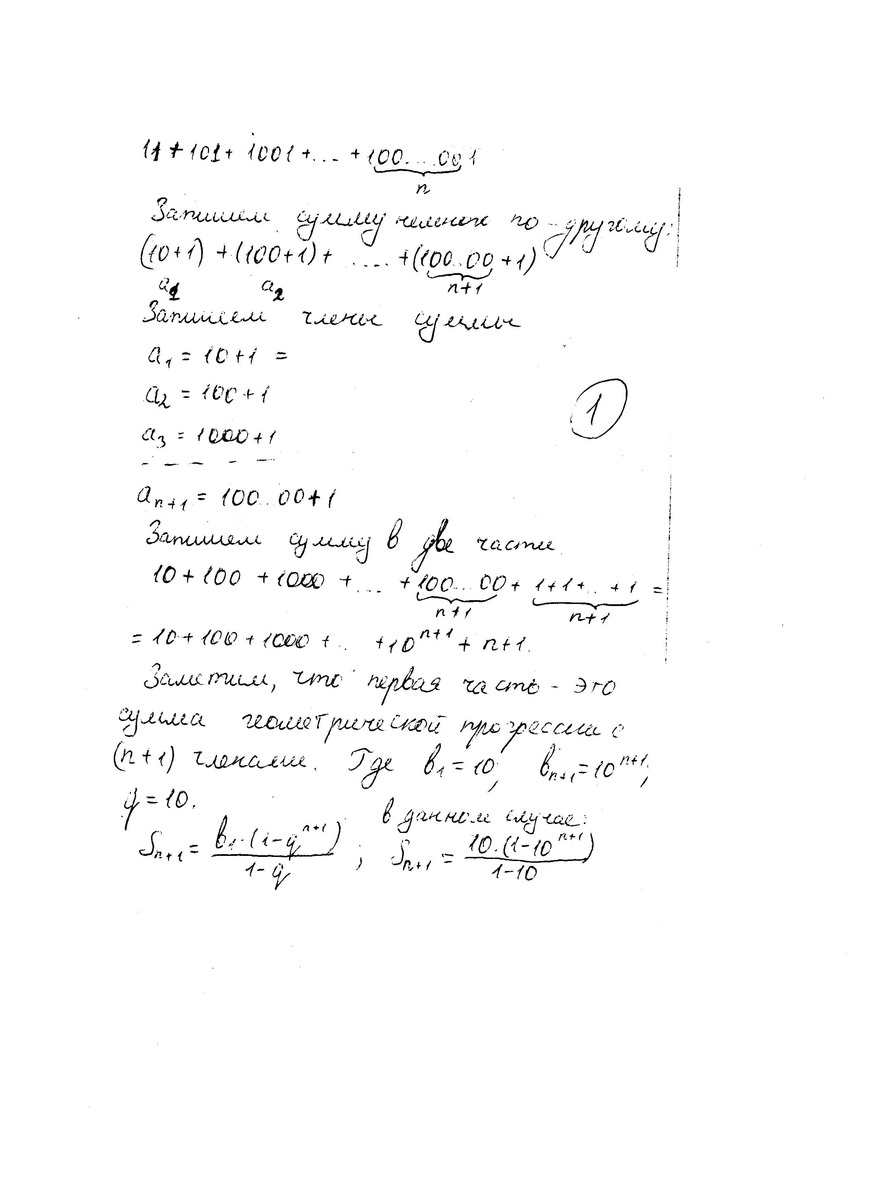 11 + 101 + 1001 + ... + 100...001
n
Запишем сумму по-другому:
(10+1) + (100+1) + .... + (100..00+1)
a1 a2 n+1
Запишем члены суммы
a1 = 10+1 =
a2 = 100+1
1
a3 = 1000+1
- - - - -
an+1 = 100..00+1
Запишем сумму в две части
10 + 100 + 1000 + ... + 100...00 + 1+1+...+1 =
n+1 n+1
= 10 + 100 + 1000 + .. + 10^n+1 + n+1.
Заметим, что первая часть - это
сумма геометрической прогрессии с
(n+1) членами. Где b1 = 10, bn+1 = 10^n+1;
q = 10. в данном случае:
Sn+1 = b1·(1-q^n+1) / 1-q ; Sn+1 = 10·(1-10^n+1) / 1-10